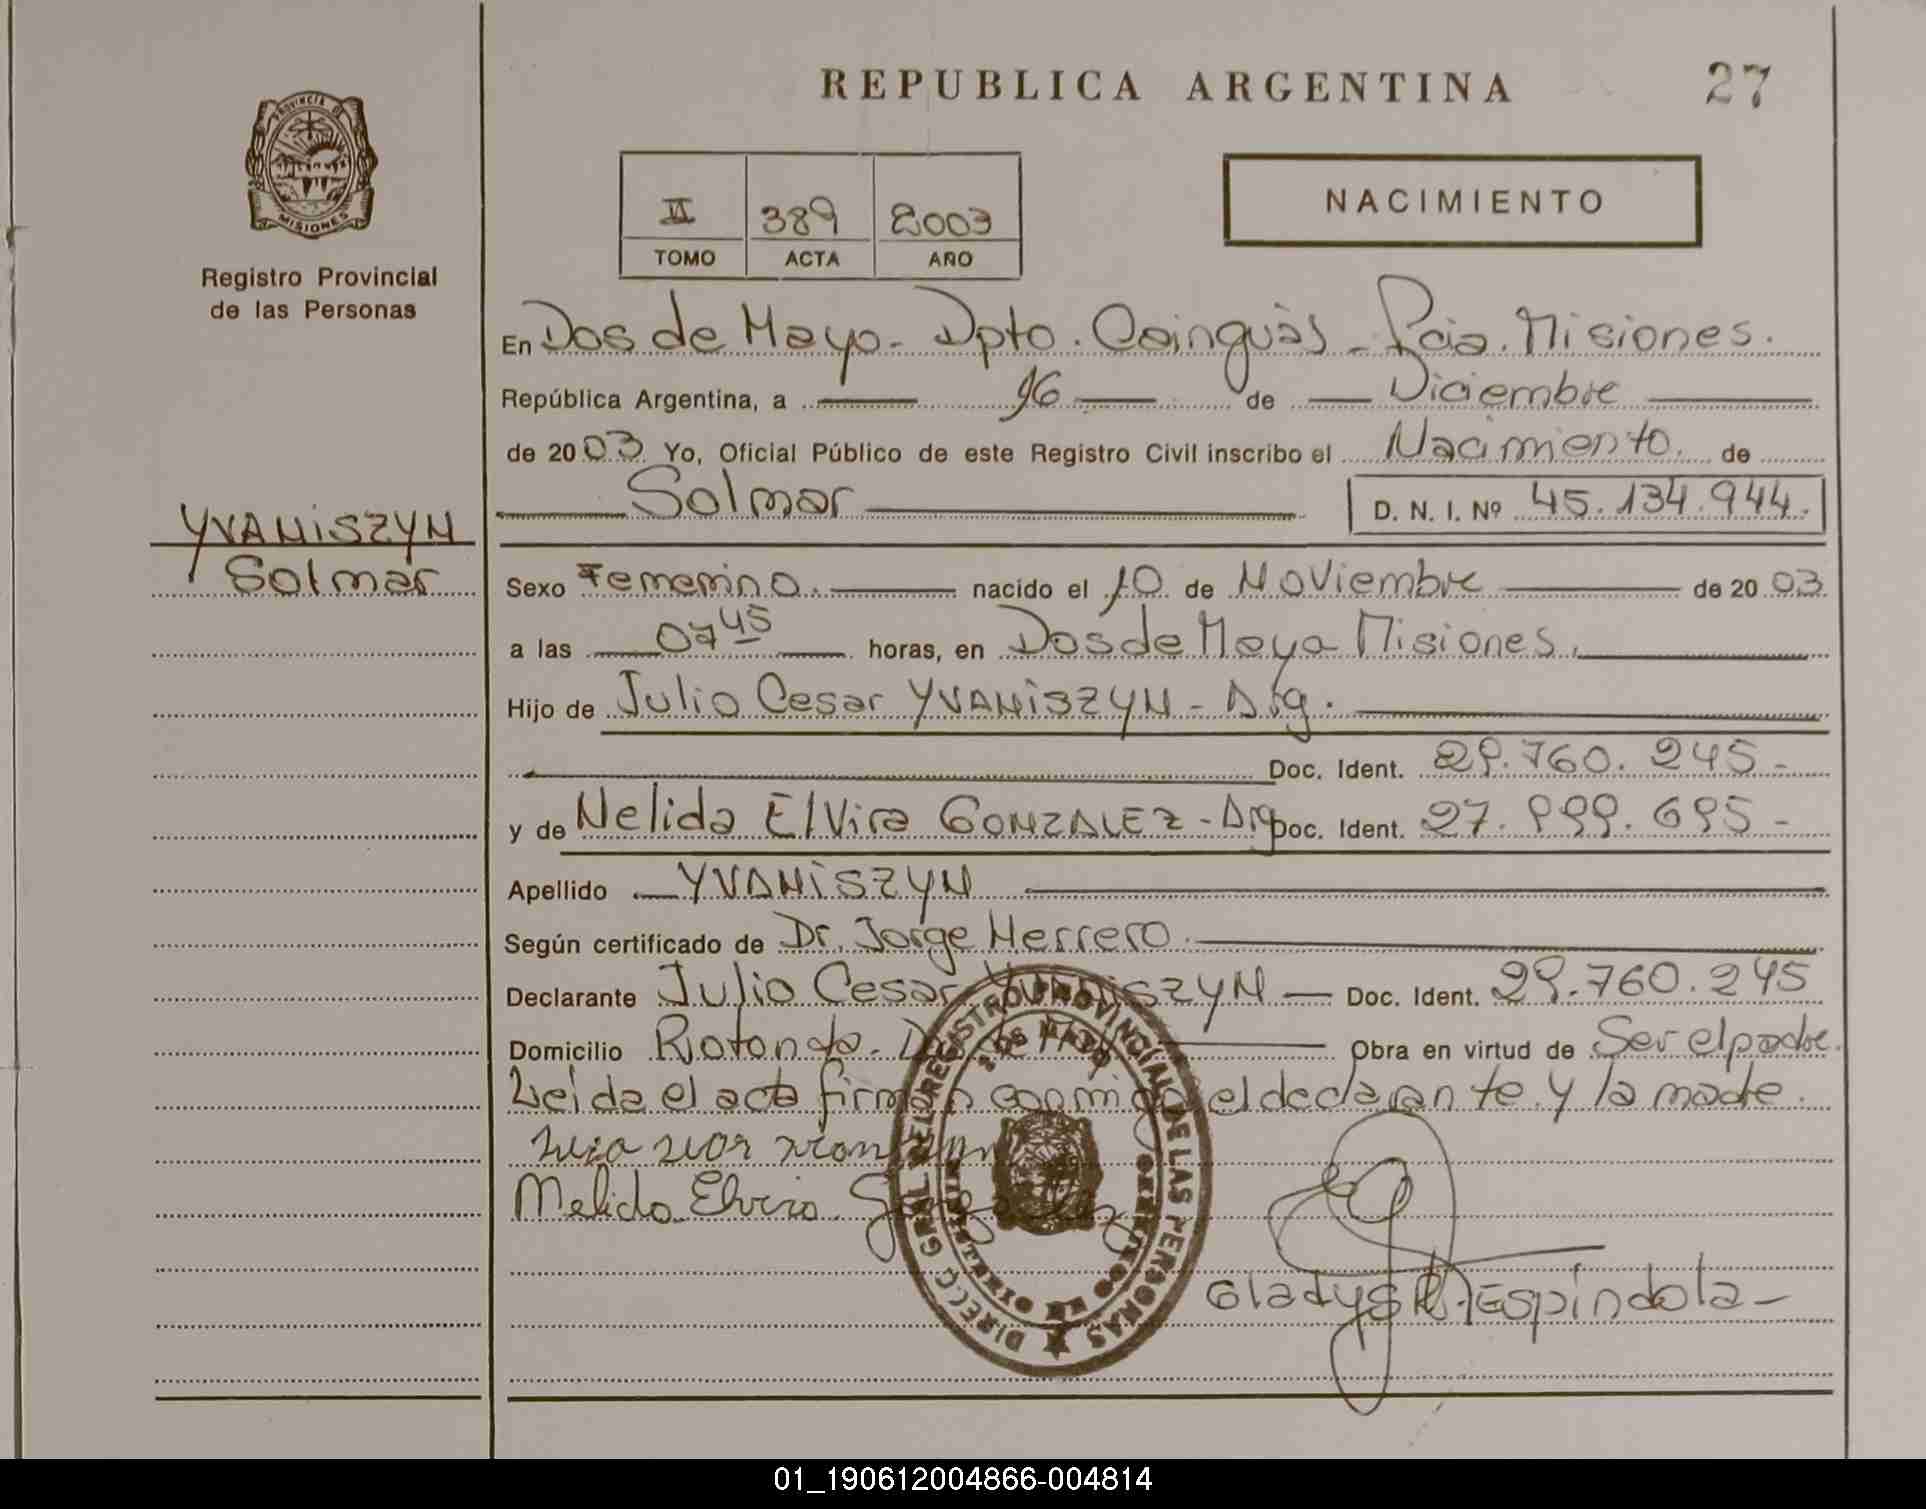 REPUBLICA ARGENTINA
27
PROVINCIA DE
MISIONES
Registro Provincial
de las Personas
II 389 2003
TOMO ACTA AÑO
NACIMIENTO
En Dos de Mayo - Dpto. Cainguàs - Pcia. Misiones.
República Argentina, a 16 de Diciembre
de 2003 Yo, Oficial Público de este Registro Civil inscribo el Nacimiento. de
Solmar D. N. I. Nº 45.134.944.
YVANiSZYN
Solmar
Sexo Femenino. nacido el 10 de Noviembre de 2003
a las 07 45 horas, en Dos de Mayo Misiones.
Hijo de Julio Cesar YVANiSZYN - Arg.
Doc. Ident. 29.760.245-
y de Nelida Elvira GONZALEZ - Arg Doc. Ident. 27.999.695-
Apellido YVANiSZYN
Según certificado de Dr. Jorge Herrero.
Declarante Julio Cesar YVANiSZYN Doc. Ident. 29.760.245
Domicilio Rotonda - Dos de Mayo Obra en virtud de Ser el padre.
Leída el acta firman conmigo el declarante y la madre.
Nelida Elvira Gonzalez
DIRECC. GRAL. DEL REGISTRO PROVINCIAL DE LAS PERSONAS
DOS DE MAYO
Gladys R. Espíndola-
01_190612004866-004814